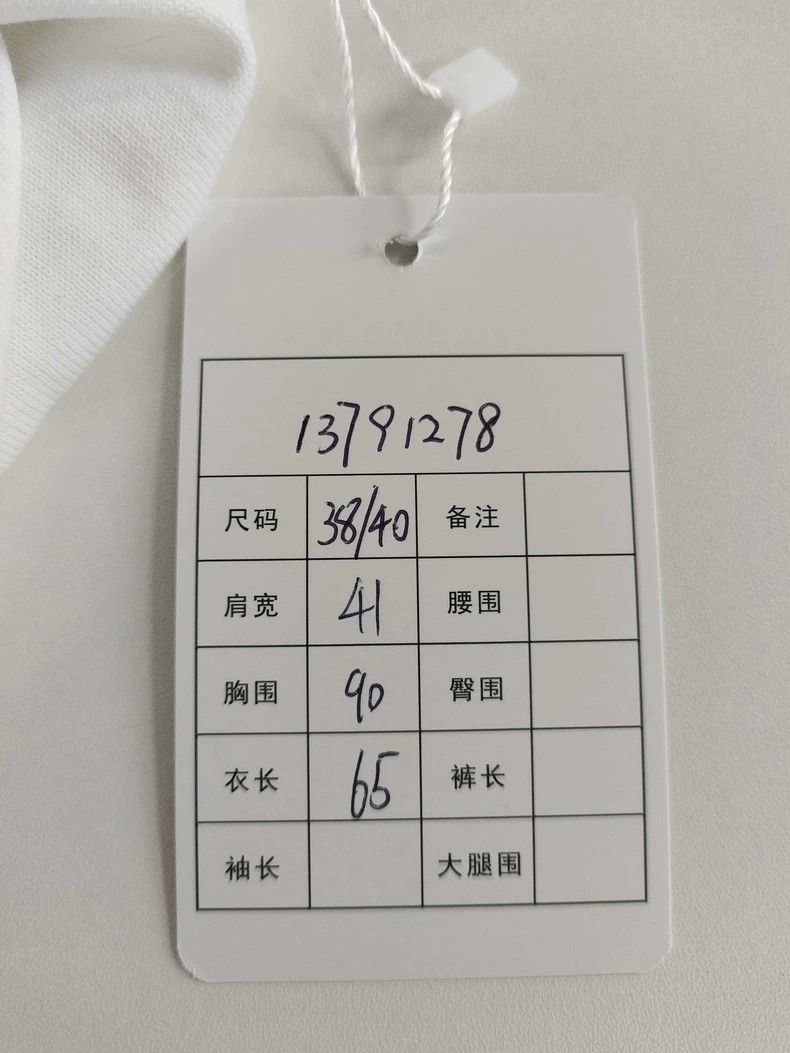 13791278
尺码 38/40 备注
肩宽 41 腰围
胸围 90 臀围
衣长 65 裤长
袖长 大腿围